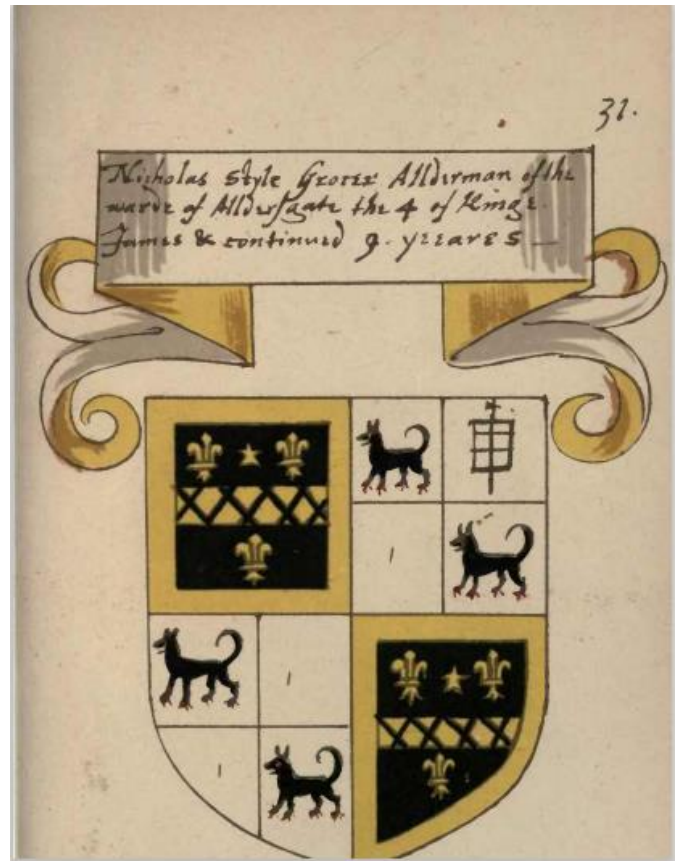 31.
Nicholas Style Grocer Allderman of the
warde of Alldersgate the 4 of Kinge
James & continued 9. yeeares